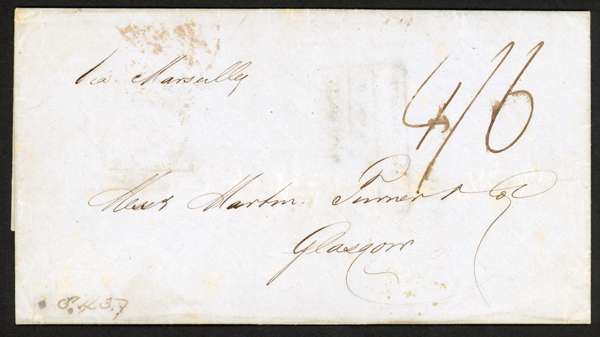 Via Marseilles
4/6
Messrs Martin Turner & Co
Glasgow